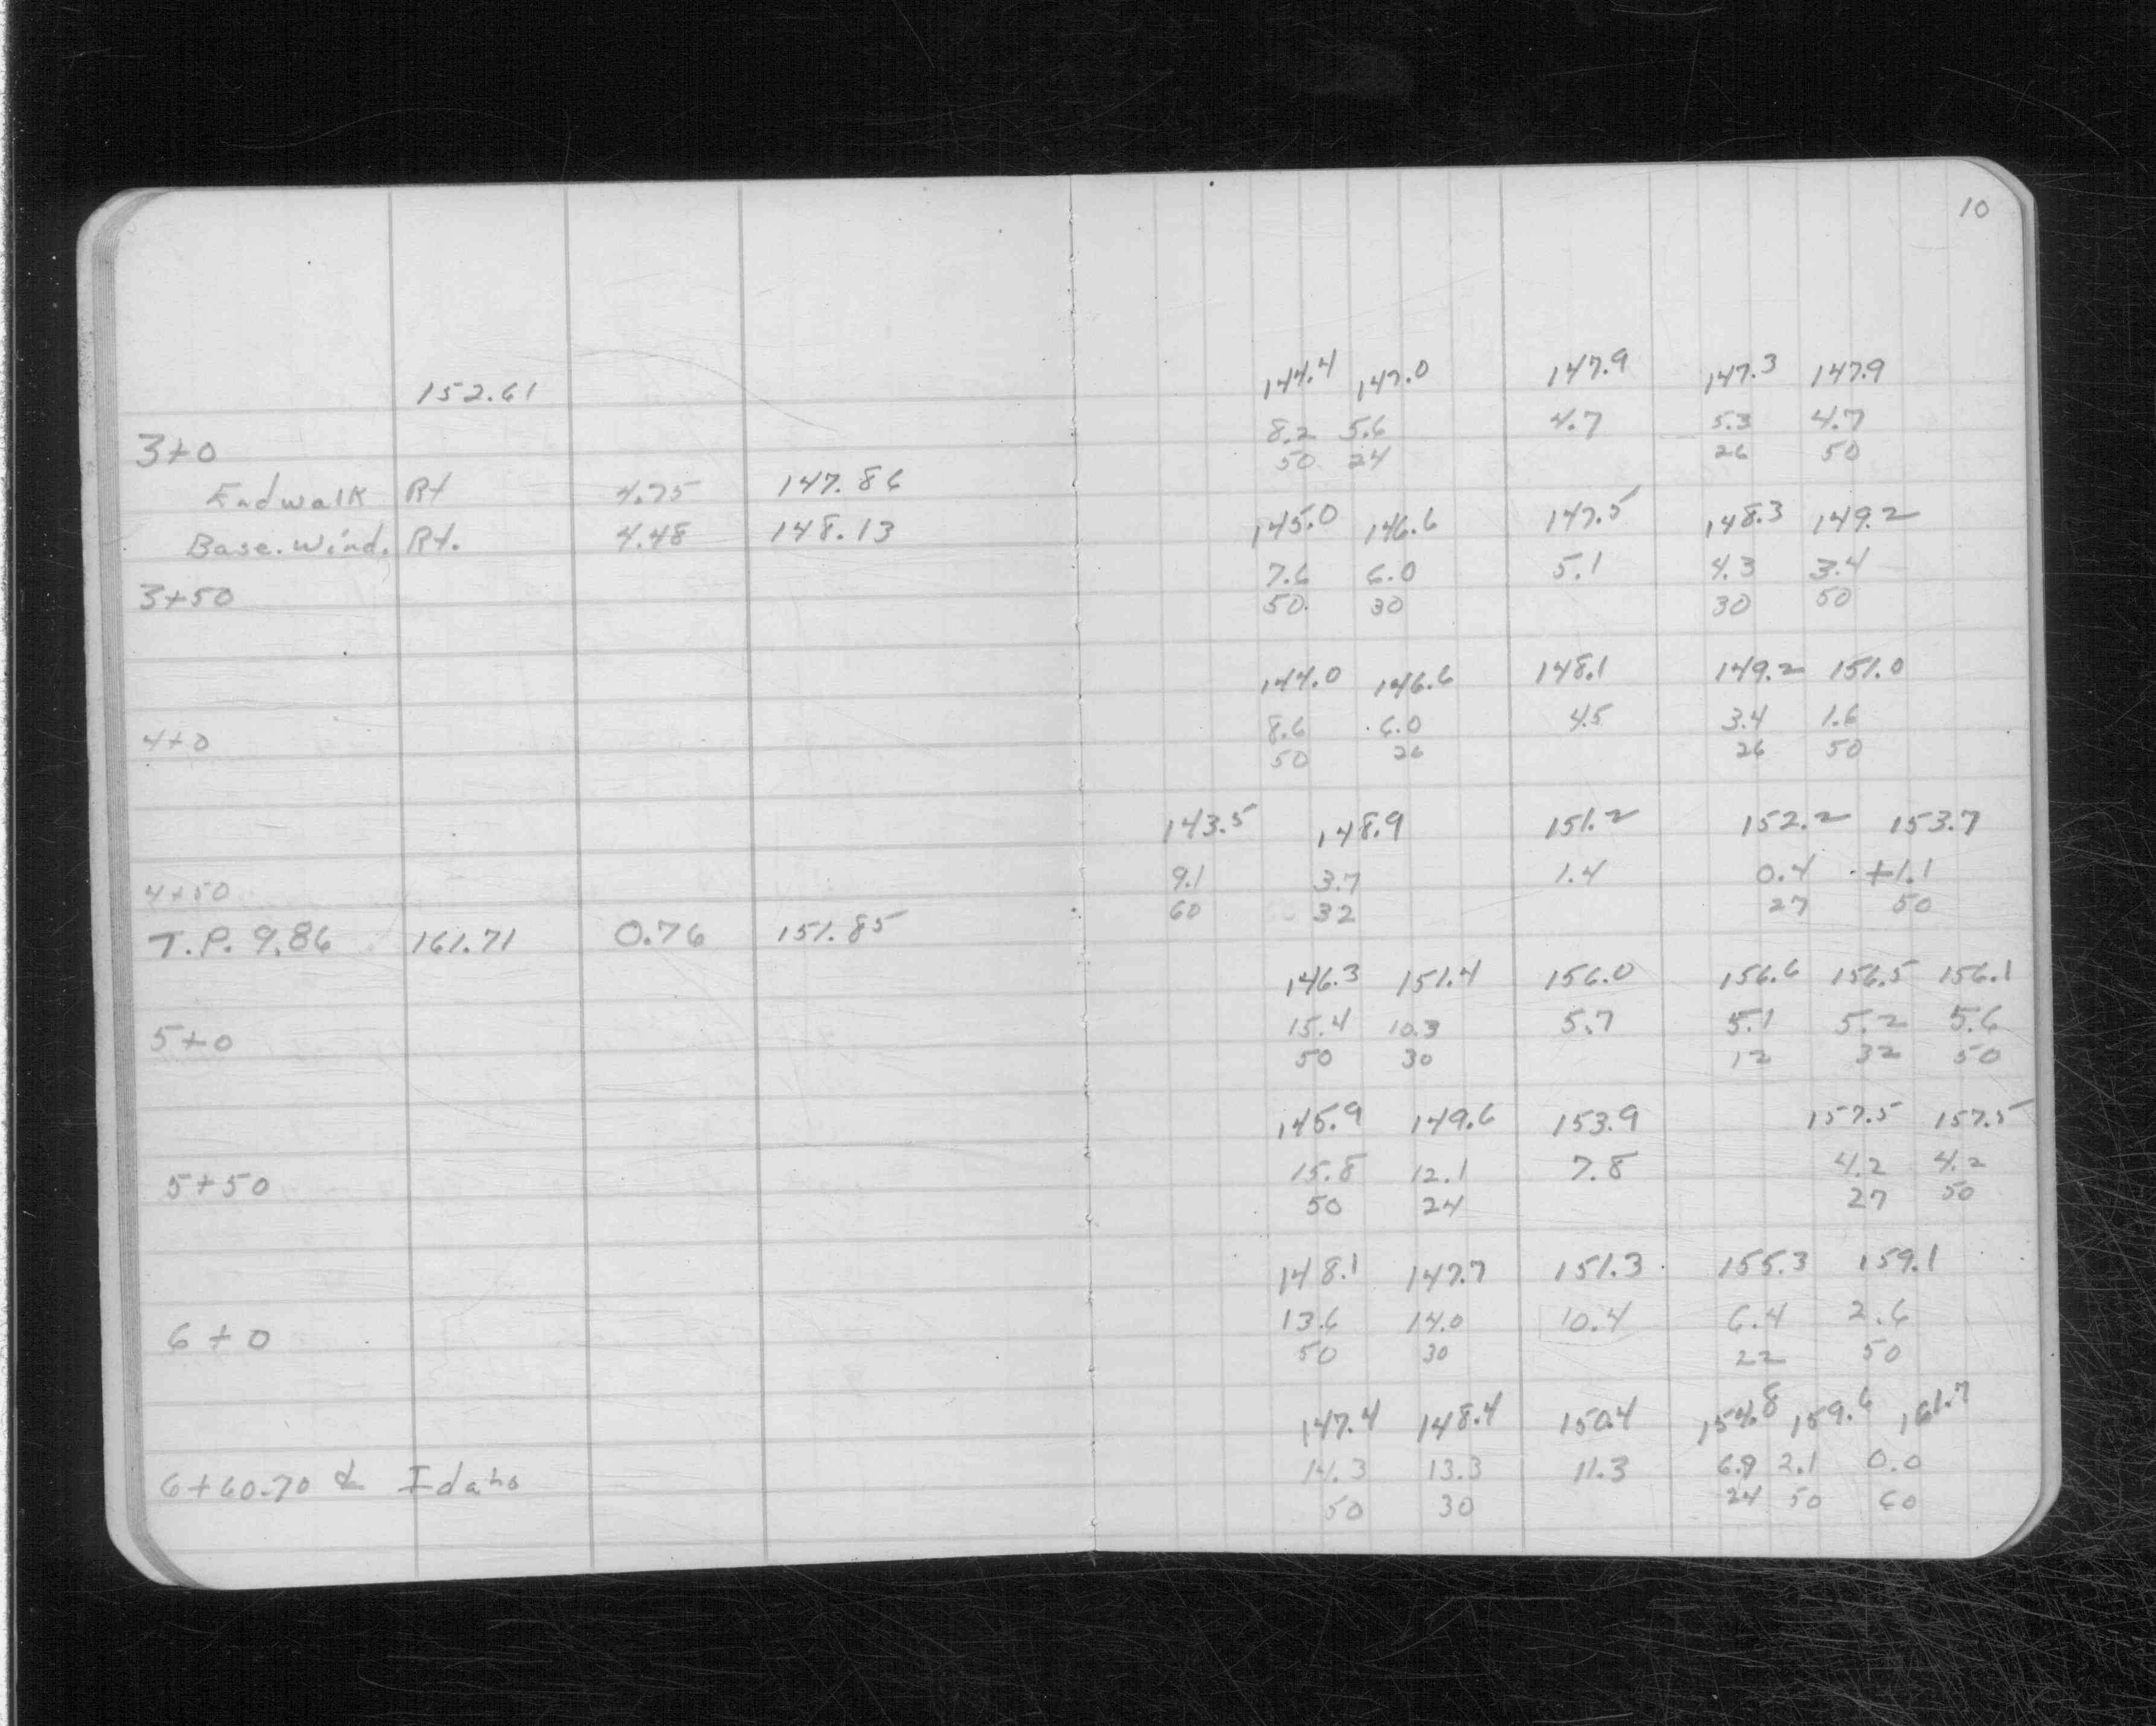 10
144.4 147.0 147.9 147.3 147.9
152.61
3+0 8.2 5.6 4.7 5.3 4.7
50 24 26 50
Endwalk Rt 4.75 147.86
Base. Wind. Rt. 4.48 148.13 145.0 146.6 147.5 148.3 149.2
3+50 7.6 6.0 5.1 4.3 3.4
50. 30 30 50
144.0 146.6 148.1 149.2 151.0
4+0 8.6 6.0 4.5 3.4 1.6
50 26 26 50
143.5 148.9 151.2 152.2 153.7
4+50 9.1 3.7 1.4 0.4 +1.1
60 32 27 50
T.P. 9.86 161.71 0.76 151.85
146.3 151.4 156.0 156.6 156.5 156.1
5+0 15.4 10.3 5.7 5.1 5.2 5.6
50 30 12 32 50
145.9 149.6 153.9 157.5 157.5
5+50 15.8 12.1 7.8 4.2 4.2
50 24 27 50
148.1 147.7 151.3 155.3 159.1
6+0 13.6 14.0 10.4 6.4 2.6
50 30 22 50
147.4 148.4 150.4 154.8 159.6 161.7
6+60.70 ℄ Idaho 14.3 13.3 11.3 6.9 2.1 0.0
50 30 24 50 60